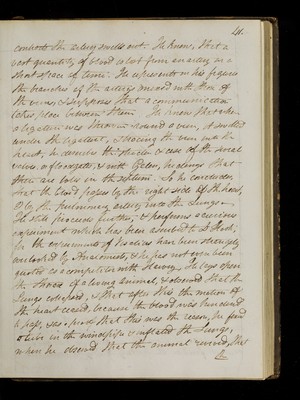 41.
contrary the artery swells out. He knew, that a
vast quantity of blood is lost from an artery in a
short space of time. He represents in his figures
the branches of the artery mixed with those of
the veins, & supposes that a communication
takes place between them. He knew that when
a ligature was thrown round a vein, it swelled
under the ligature,
heart; he
veins, & with Galen, that
there are holes in the septum. So he concludes,
that the blood passes by the right side of the heart,
& by the pulmonary artery into the Lungs.
He still proceeds further, & performs a curious
experiment which has been ascribed to Dr. Hook,
for the experiments of Vesalius have been strangely
overlooked by Anatomists, & he has not even been
quoted as a competitor with Harvey. He lays open
the thorax of a living animal, & observed that the
Lungs collapsed, & that after this the motion of
the heart ceased, because the blood was hindered
to pass, & as a proof that this was the reason, he fixed
a tube in the windpipe & inflated the Lungs,
when he observed that the animal revived, that